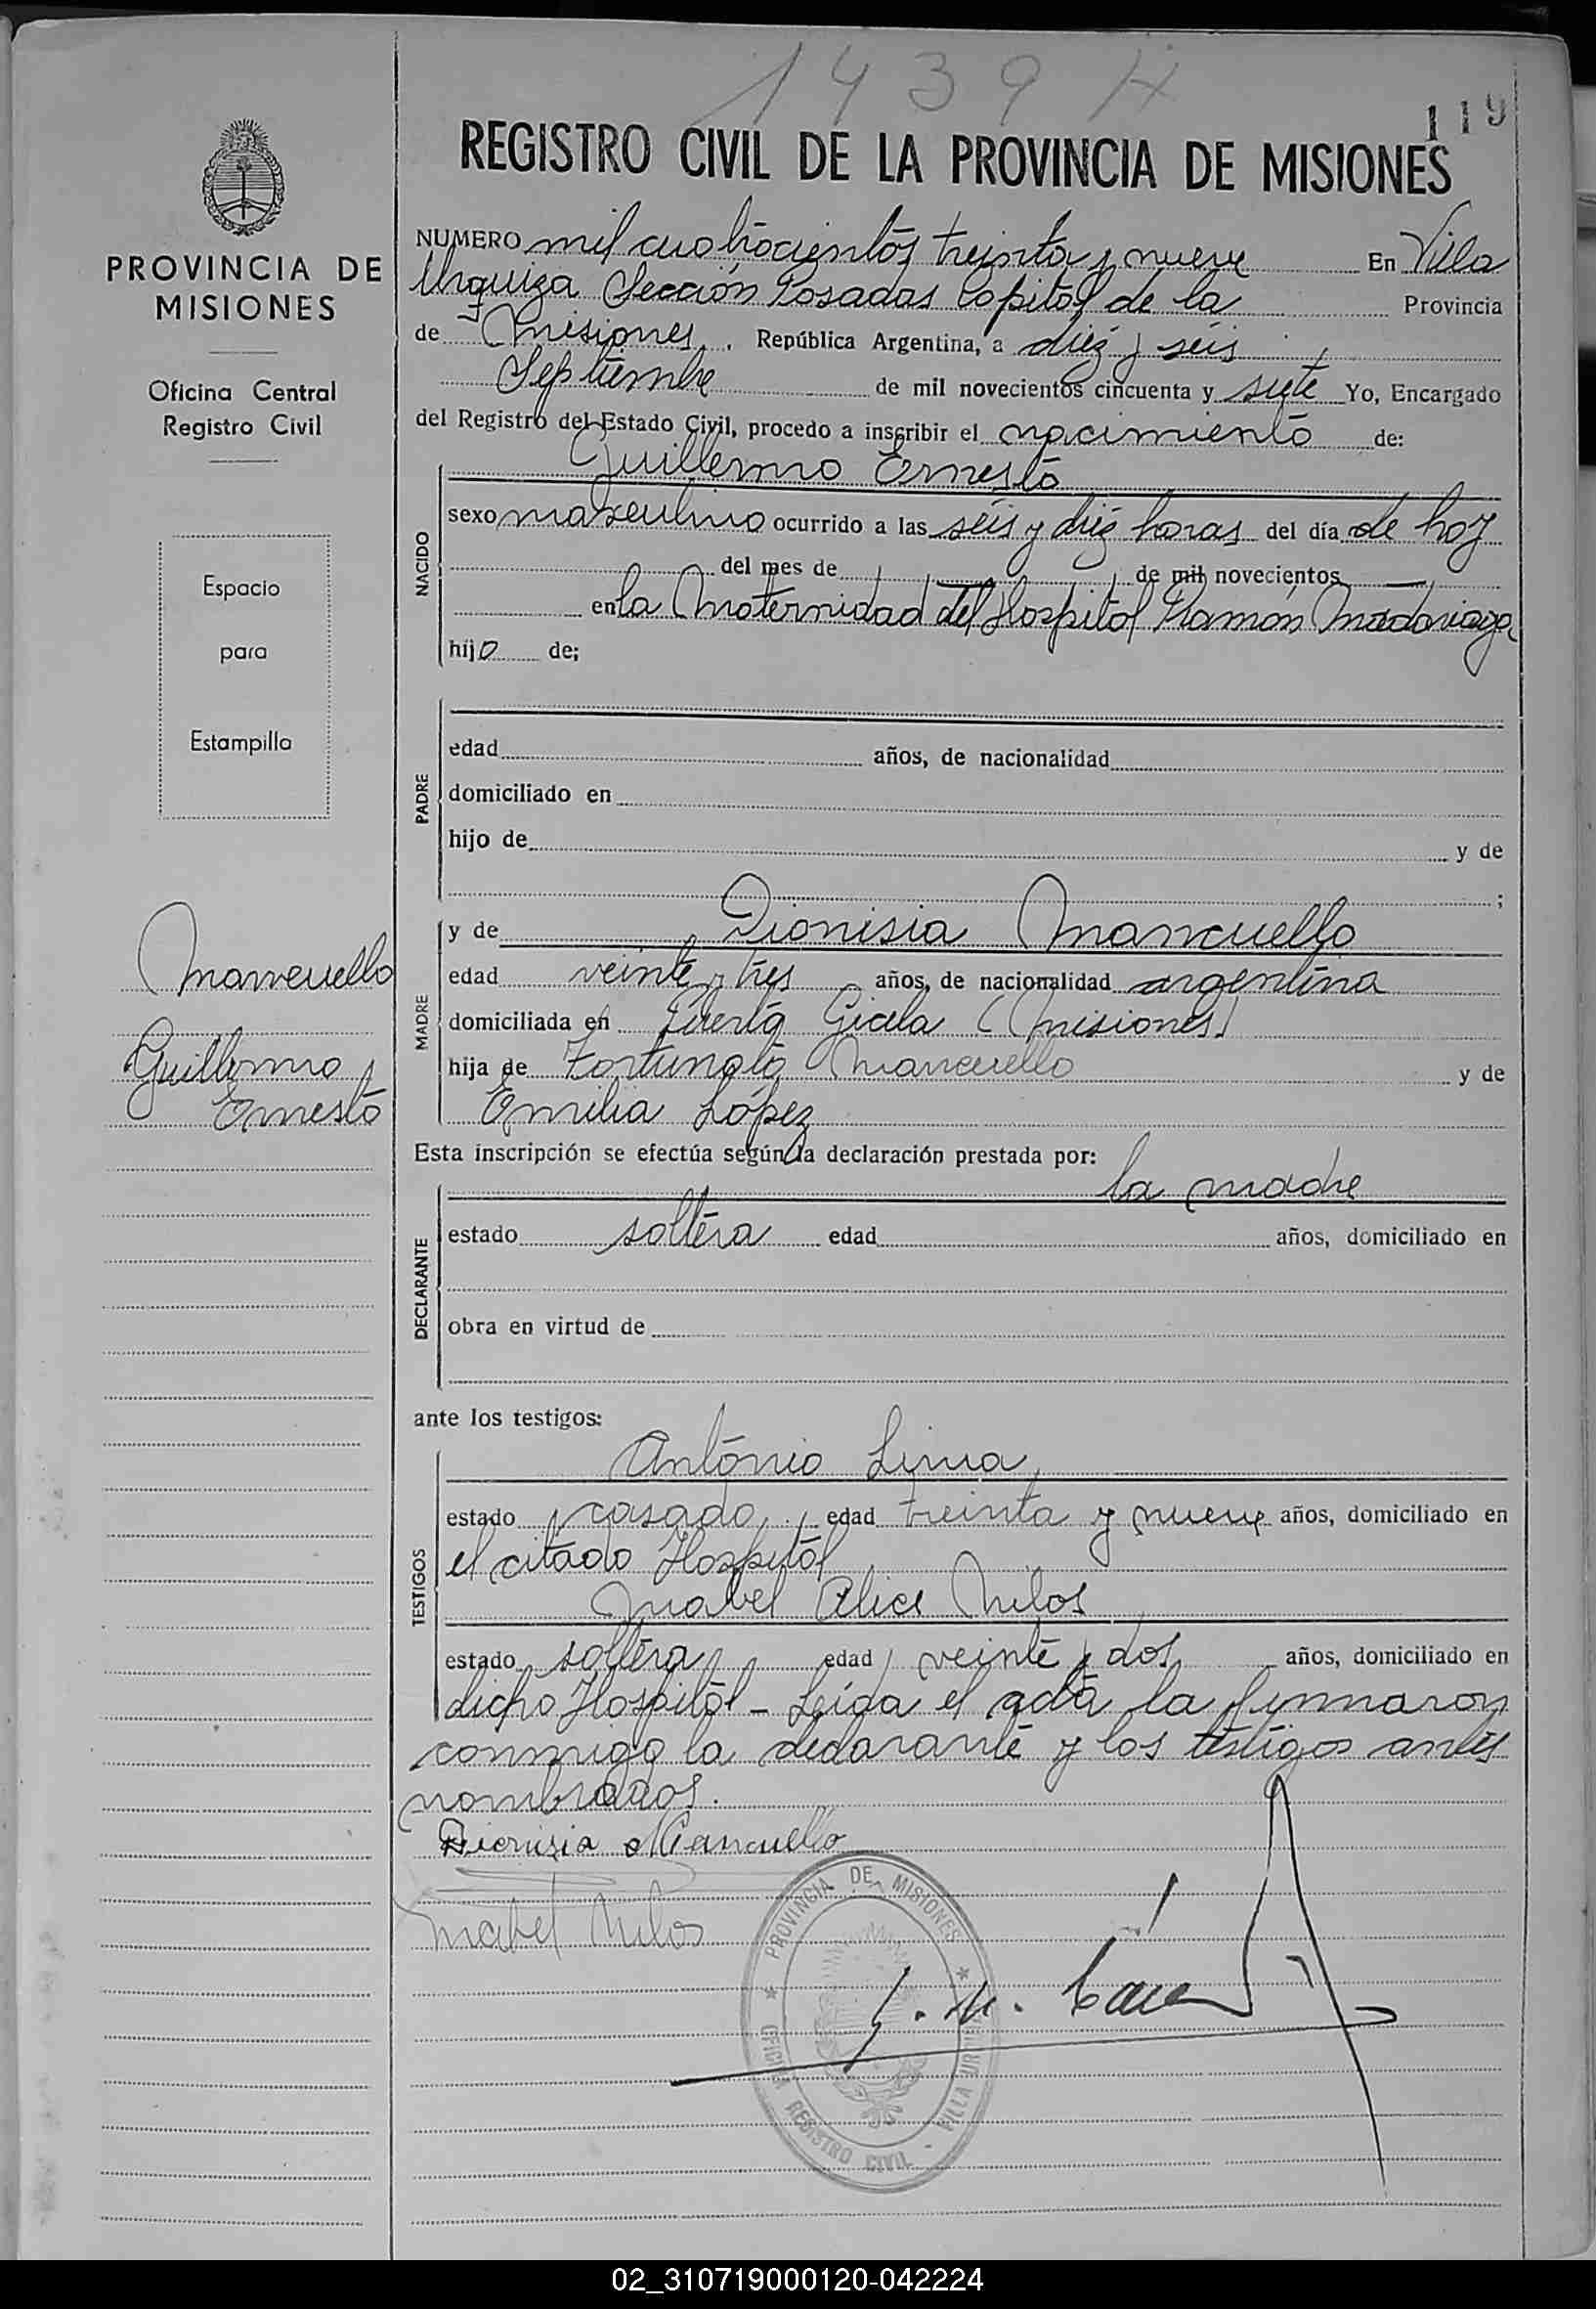 1439 H
119
REGISTRO CIVIL DE LA PROVINCIA DE MISIONES
PROVINCIA DE
MISIONES
Oficina Central
Registro Civil
Espacio
para
Estampilla
Mancuello
Guillermo
Ernesto
NUMERO mil cuatrocientos treinta y nueve En Villa
Urquiza Sección Posadas Capital de la Provincia
de Misiones, República Argentina, a diez y seis
Septiembre de mil novecientos cincuenta y siete Yo, Encargado
del Registro del Estado Civil, procedo a inscribir el nacimiento de:
Guillermo Ernesto
NACIDO
sexo masculino ocurrido a las seis y diez horas del día de hoy
del mes de de mil novecientos
en la Maternidad del Hospital Ramón Madariaga
hijo de;
PADRE
edad años, de nacionalidad
domiciliado en
hijo de y de
;
MADRE
y de Dionisia Mancuello
edad veinte y tres años, de nacionalidad argentina
domiciliada en Puerto Gisela (Misiones)
hija de Fortunato Mancuello y de
Emilia López
Esta inscripción se efectúa según la declaración prestada por:
la madre
DECLARANTE
estado soltera edad años, domiciliado en
obra en virtud de
ante los testigos:
TESTIGOS
Antonio Lima
estado casado, edad treinta y nueve años, domiciliado en
el citado Hospital
Mabel Alice Milos
estado soltera edad veinte y dos años, domiciliado en
dicho Hospital - Leída el acta la firmaron
conmigo la declarante y los testigos antes
nombrados.
Dionisia Mancuello
Mabel Milos
PROVINCIA DE MISIONES
OFICINA REGISTRO CIVIL - VILLA URQUIZA
02_310719000120-042224